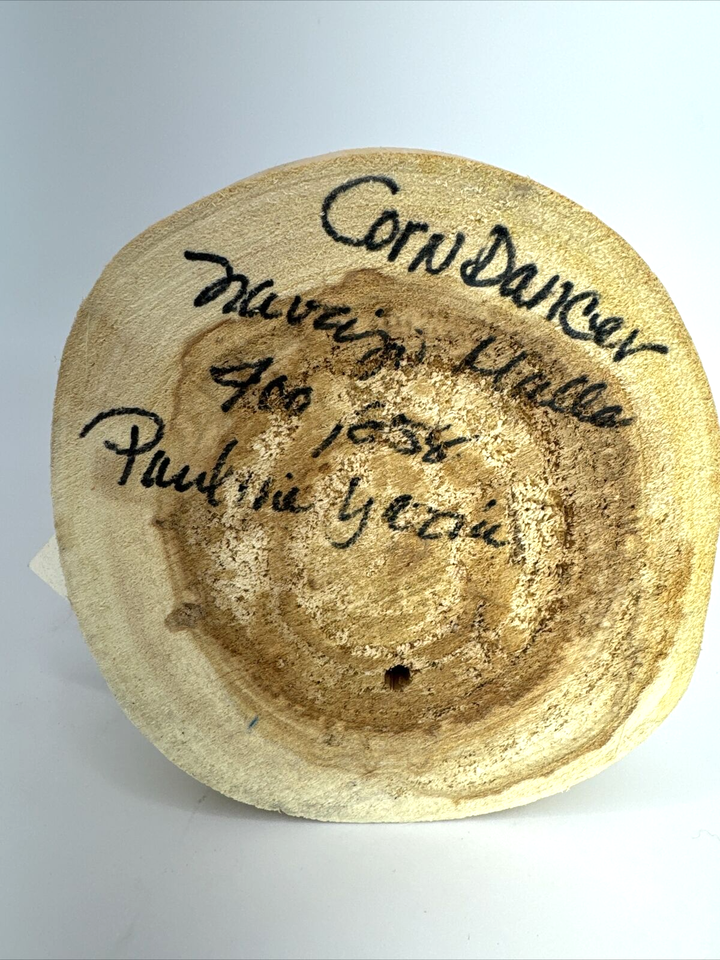 Corn Dancer
Navaijo
400,658
Pauline Yazzie